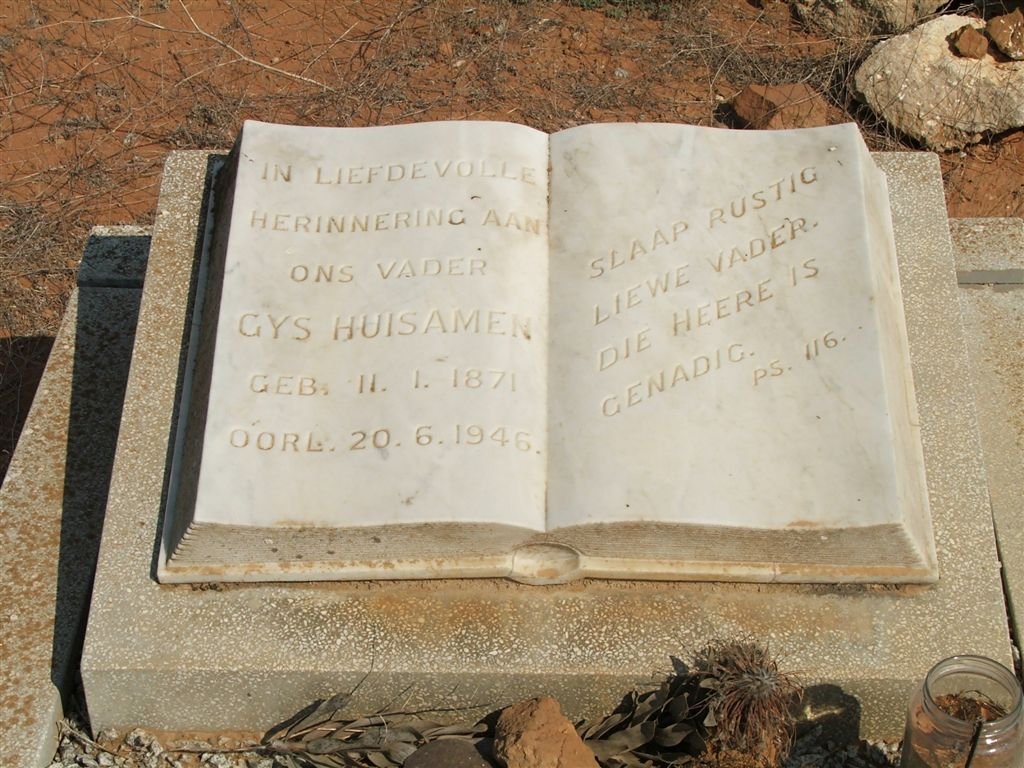 IN LIEFDEVOLLE
HERINNERING AAN
ONS VADER
GYS HUISAMEN
GEB. 11. 1. 1871
OORL. 20. 6. 1946.
SLAAP RUSTIG
LIEWE VADER.
DIE HEERE IS
GENADIG.
PS. 116.